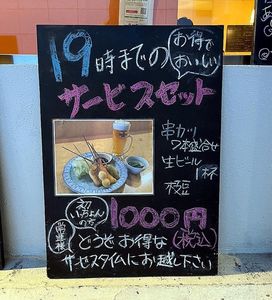 19時までの
お得で
おいしい
サービスセット
串カツ
7本盛合せ
生ビール
1杯
枝豆
初
いらっしゃる
の方
1000円
常連様
(税込)
どうぞお得な
サービスタイムにお越し下さい